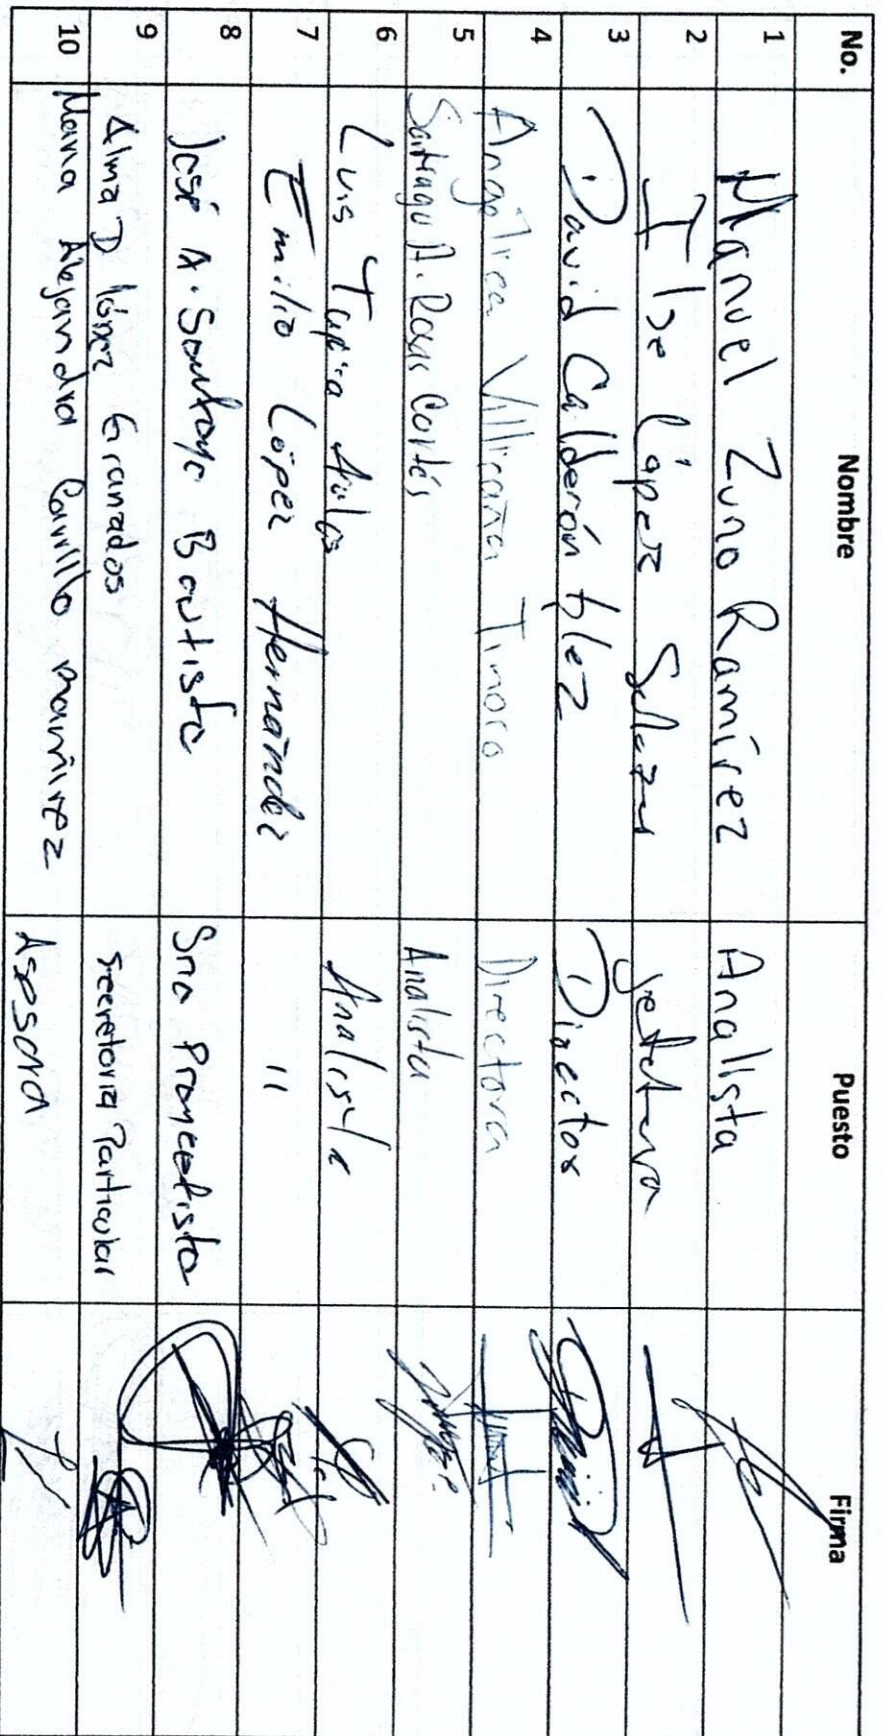 No. Nombre Puesto Firma
1 Manuel Zuno Ramírez Analista
2 Ilse López Salazar Jefatura
3 David Calderón Glez Director
4 Angélica Villicaña Tinoco Directora
5 Santiago A. Rosas Cortés Analista
6 Luis Tapia Analista
7 Emilio López Hernández "
8 José A. Santoyo Bautista Srio Proyectista
9 Alma D López Granados Secretaria Particular
10 María Alejandra Carrillo Ramírez Asesora